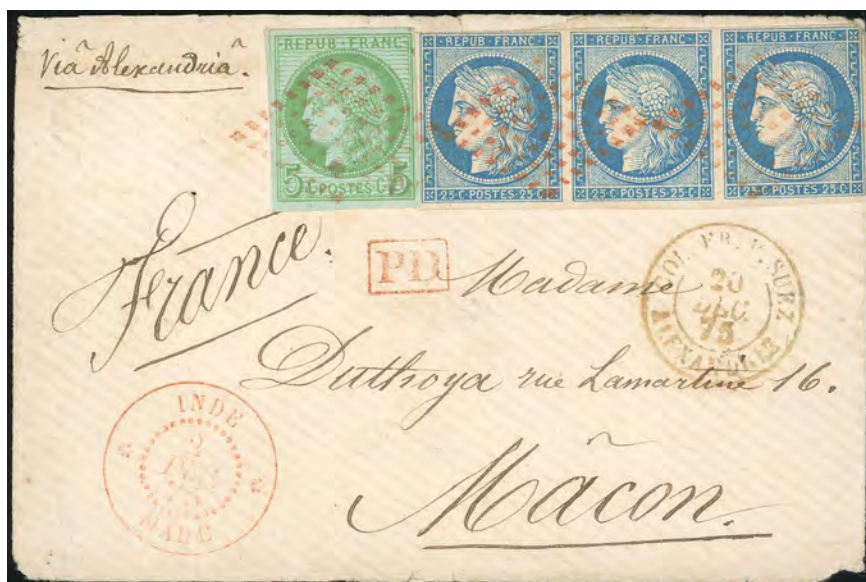 Viâ Alexandria.
REPUB · FRANC
5 C POSTES C 5
REPUB · FRANC
25 · C · POSTES · 25 · C
REPUB · FRANC
25 · C · POSTES · 25 · C
REPUB · FRANC
25 · C · POSTES · 25 · C
France.
PD
Madame
COL. FR. V. SUEZ
20
DEC.
75
ALEXANDRIE
Duthoya rue Lamartine 16.
INDE
2
Mâcon.